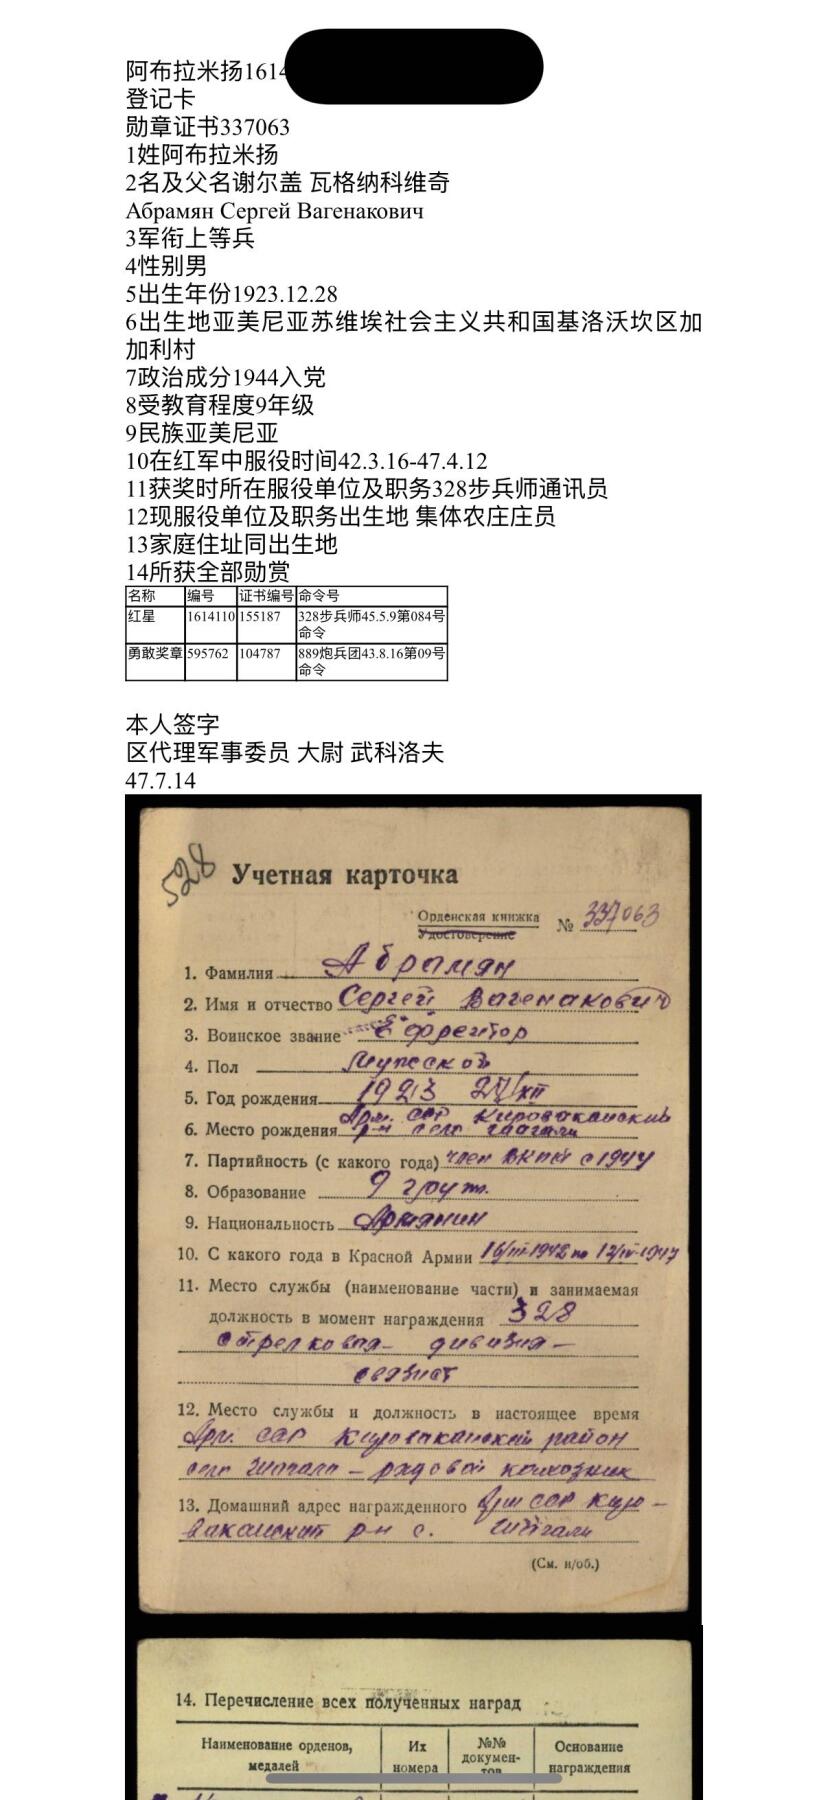 阿布拉米扬1614
登记卡
勋章证书337063
1姓阿布拉米扬
2名及父名谢尔盖 瓦格纳科维奇
Абрамян Сергей Вагенакович
3军衔上等兵
4性别男
5出生年份1923.12.28
6出生地亚美尼亚苏维埃社会主义共和国基洛沃坎区加
加利村
7政治成分1944入党
8受教育程度9年级
9民族亚美尼亚
10在红军中服役时间42.3.16-47.4.12
11获奖时所在服役单位及职务328步兵师通讯员
12现服役单位及职务出生地 集体农庄庄员
13家庭住址同出生地
14所获全部勋赏
名称 编号 证书编号 命令号
红星 1614110 155187 328步兵师45.5.9第084号
命令
勇敢奖章 595762 104787 889炮兵团43.8.16第09号
命令
本人签字
区代理军事委员 大尉 武科洛夫
47.7.14
528
Учетная карточка
Орденская книжка
Удостоверение
№ 337063
1. Фамилия Абрамян
2. Имя и отчество Сергей Вагенакович
3. Воинское звание Ефрейтор
4. Пол Мужской
5. Год рождения 1923
6. Место рождения Арм. ССР Кироваканский
р-н село
7. Партийность (с какого года) член ВКПб с 1944
8. Образование 9 групп.
9. Национальность Армянин
10. С какого года в Красной Армии 16/III-1942 по 12/IV-1947
11. Место службы (наименование части) и занимаемая
должность в момент награждения 328
стрелковая дивизия –
связист
12. Место службы и должность в настоящее время
Арм. ССР Кироваканский район
село – рядовой колхозник
13. Домашний адрес награжденного Арм ССР Киро-
ваканский р-н с.
(См. н/об.)
14. Перечисление всех полученных наград
Наименование орденов,
медалей
Их
номера
№№
докумен-
тов
Основание
награждения